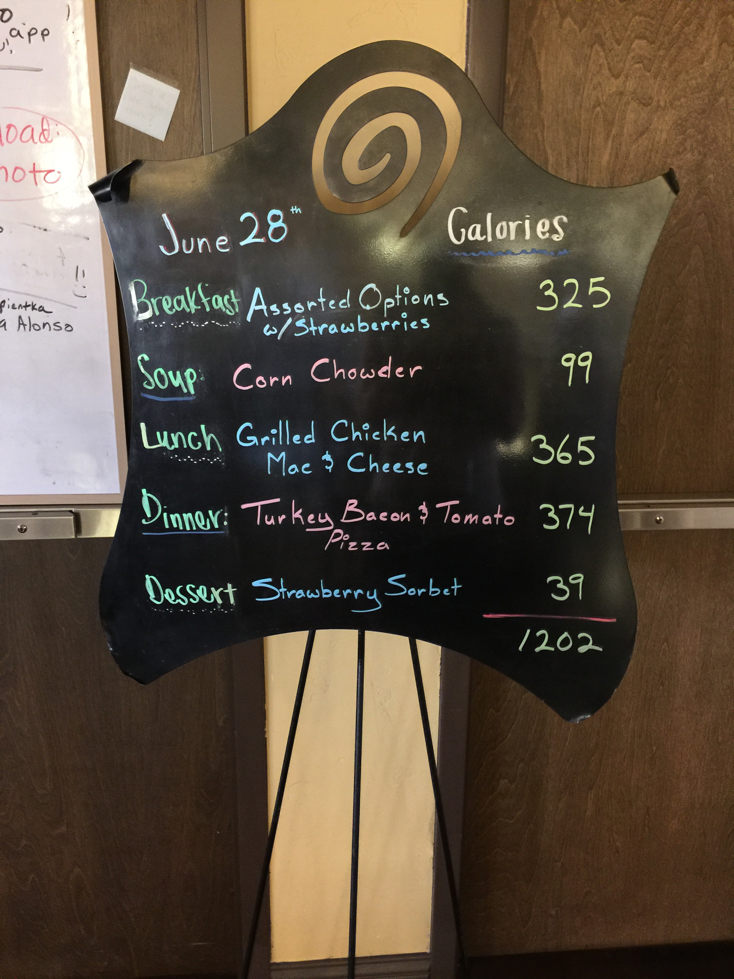 app
load:
noto
Alonso
June 28th Calories
Breakfast Assorted Options 325
w/Strawberries
Soup: Corn Chowder 99
Lunch Grilled Chicken 365
Mac & Cheese
Dinner: Turkey Bacon & Tomato 374
Pizza
Dessert Strawberry Sorbet 39
1202